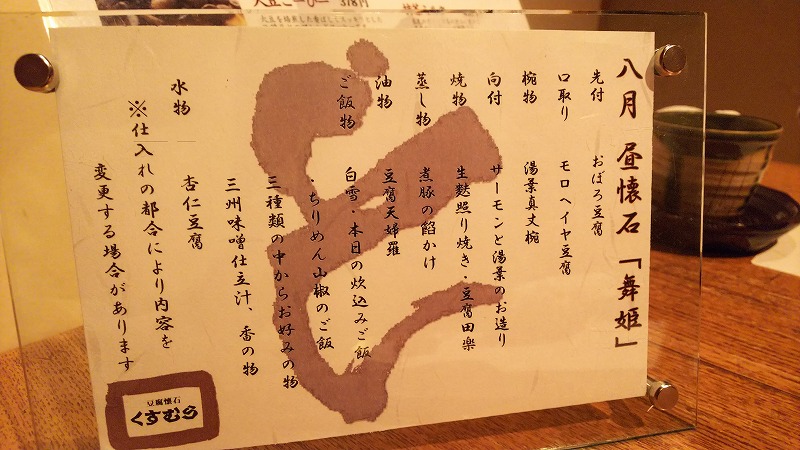 八月 昼懐石「舞姫」
先付 おぼろ豆腐
口取り モロヘイヤ豆腐
椀物 湯葉真丈椀
向付 サーモンと湯葉のお造り
焼物 生麩照り焼き・豆腐田楽
蒸し物 煮豚の餡かけ
油物 豆腐天婦羅
ご飯物 白雪・本日の炊込みご飯
・ちりめん山椒のご飯
三種類の中からお好みの物
三州味噌仕立汁、香の物
水物 杏仁豆腐
※仕入れの都合により内容を
変更する場合があります
豆腐懐石
くすむら
378円